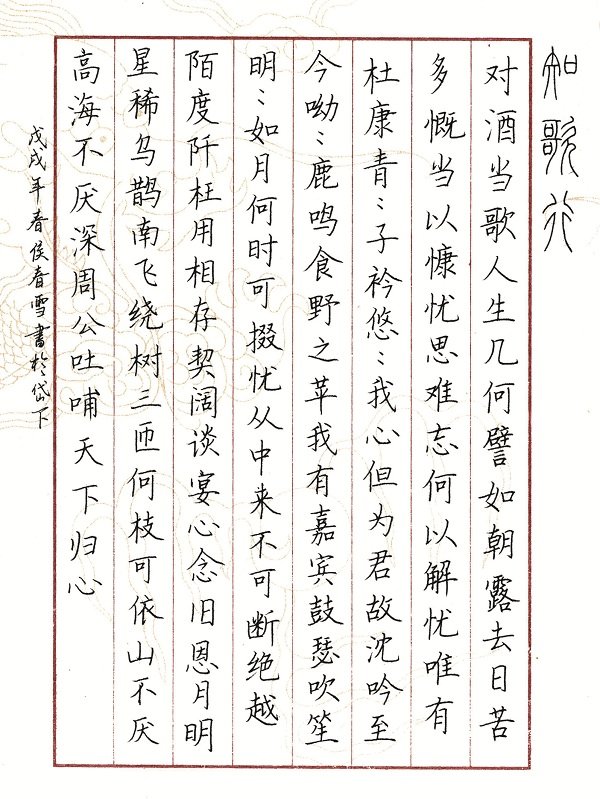 短歌行
对酒当歌人生几何譬如朝露去日苦
多慨当以慷忧思难忘何以解忧唯有
杜康青〻子衿悠〻我心但为君故沈吟至
今呦〻鹿鸣食野之苹我有嘉宾鼓瑟吹笙
明〻如月何时可掇忧从中来不可断绝越
陌度阡枉用相存契阔谈宴心念旧恩月明
星稀乌鹊南飞绕树三匝何枝可依山不厌
高海不厌深周公吐哺天下归心
戊戌年春侯春雪書於岱下